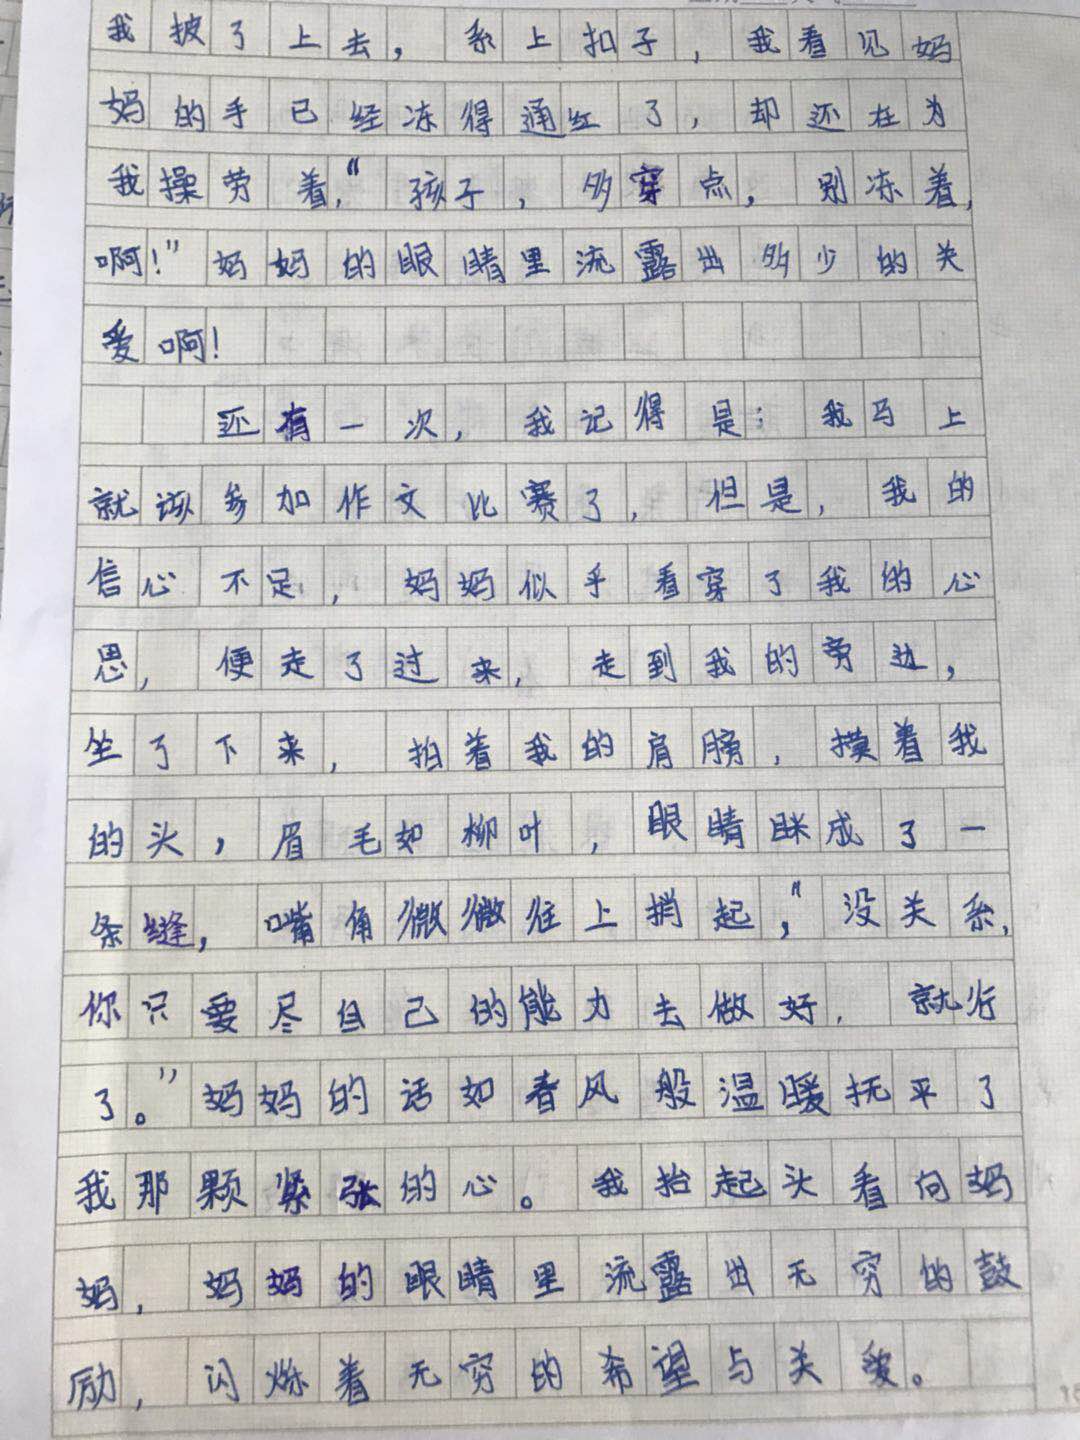 我披了上去，系上扣子，我看见妈
妈的手已经冻得通红了，却还在为
我操劳着，“孩子，多穿点，别冻着，
啊！”妈妈的眼睛里流露出多少的关
爱啊！
还有一次，我记得是：我马上
就该参加作文比赛了，但是，我的
信心不足，妈妈似乎看穿了我的心
思，便走了过来，走到我的旁边，
坐了下来，拍着我的肩膀，摸着我
的头，眉毛如柳叶，眼睛眯成了一
条缝，嘴角微微往上捎起，“没关系，
你只要尽自己的能力去做好，就行
了。”妈妈的话如春风般温暖抚平了
我那颗紧张的心。我抬起头看向妈
妈，妈妈的眼睛里流露出无穷的鼓
励，闪烁着无穷的希望与关爱。